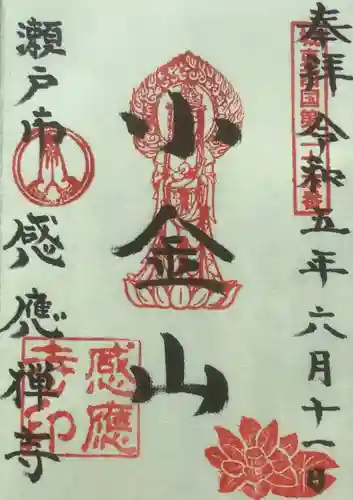 奉拝 令和五年六月十一日
小金山
瀬戸市 感應禅寺
感應寺印